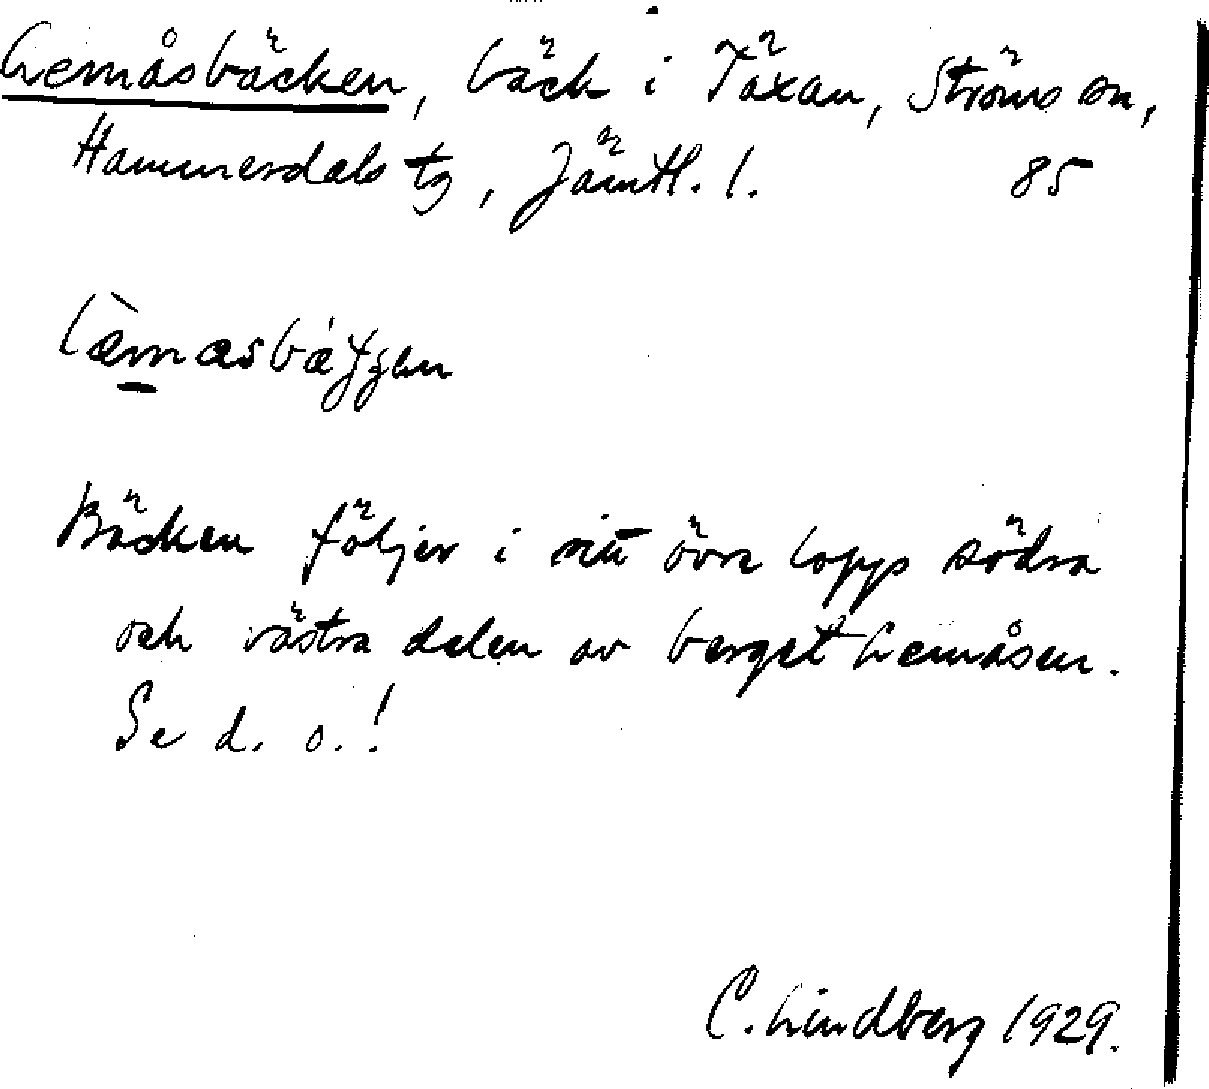 Lemåsbäcken, bäck i Täxan, Ströms sn,
Hammerdals tg, Jämtl. l. 85
Bäcken följer i sitt övre lopp södra
och västra delen av berget Lemåsen.
Se d. o.!
C. Lindberg 1929.